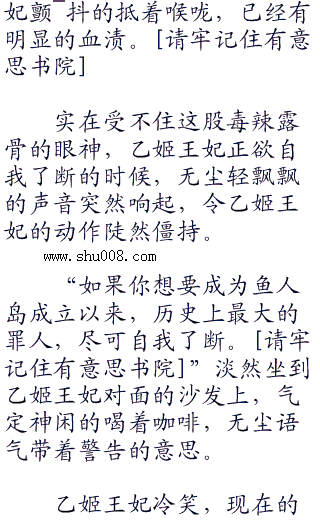 妃颤 抖的抵着喉咙，已经有
明显的血渍。[请牢记住有意
思书院]
实在受不住这股毒辣露
骨的眼神，乙姬王妃正欲自
我了断的时候，无尘轻飘飘
的声音突然响起，令乙姬王
妃的动作陡然僵持。
www.shu008.com
“如果你想要成为鱼人
岛成立以来，历史上最大的
罪人，尽可自我了断。[请牢
记住有意思书院]”淡然坐到
乙姬王妃对面的沙发上，气
定神闲的喝着咖啡，无尘语
气带着警告的意思。
乙姬王妃冷笑，现在的